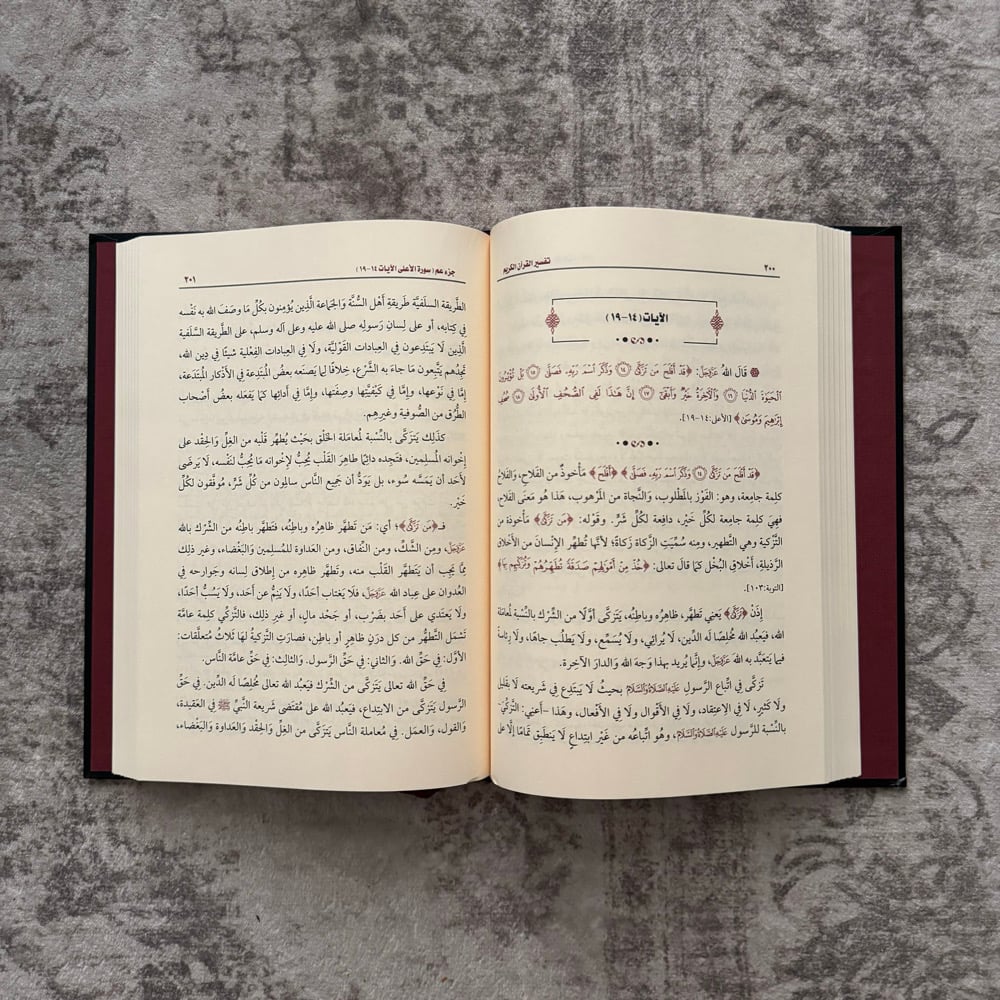 ٢٠٠
تفسير القرآن الكريم
الآيات (١٤-١٩)
قَالَ اللهُ عَزَّوَجَلَّ: ﴿قَدْ أَفْلَحَ مَن تَزَكَّىٰ ⑭ وَذَكَرَ ٱسْمَ رَبِّهِۦ فَصَلَّىٰ ⑮ بَلْ تُؤْثِرُونَ
ٱلْحَيَوٰةَ ٱلدُّنْيَا ⑯ وَٱلْآخِرَةُ خَيْرٌ وَأَبْقَىٰٓ ⑰ إِنَّ هَٰذَا لَفِى ٱلصُّحُفِ ٱلْأُولَىٰ ⑱ صُحُفِ
إِبْرَٰهِيمَ وَمُوسَىٰ﴾ [الأعلى:١٤-١٩].
﴿قَدْ أَفْلَحَ مَن تَزَكَّىٰ ⑭ وَذَكَرَ ٱسْمَ رَبِّهِۦ فَصَلَّىٰ﴾ ﴿أَفْلَحَ﴾ مَأخوذٌ من الفَلَاحِ، والفَلَاح
كلمة جامِعة، وهو: الفَوْز بالمَطْلوب، وَالنَّجاة من المَرْهوب، هَذَا هُو مَعنَى الفَلَاح
فهِيَ كلمة جامِعة لكُلِّ خَيْر، دافِعة لكُلِّ شَرٍّ. وقَولُه: ﴿مَن تَزَكَّىٰ﴾ مَأخوذة من
التَّزْكية وهي التَّطهير، ومِنه سُمِّيَتِ الزَّكاة زَكاةً؛ لأنَّها تُطهِّر الإنْسانَ من الأَخْلاق
الرَّذيلةِ، أَخْلاقِ البُخْل كما قَالَ تعالى: ﴿خُذْ مِنْ أَمْوَٰلِهِمْ صَدَقَةً تُطَهِّرُهُمْ وَتُزَكِّيهِم بِهَا﴾
[التوبة:١٠٣].
إِذَنْ ﴿تَزَكَّىٰ﴾ يَعنِي تَطهَّر، ظاهِرُه وباطِنُه، يَتزَكَّى أوَّلًا من الشِّرْك بالنِّسْبة لمُعامَلة
الله، فيَعبُد الله مُخلِصًا له الدِّين، لَا يُرائِي، ولَا يُسَمِّع، ولَا يَطلُب جاهًا، ولَا رئاسةً
فيما يَتعَبَّد به اللهَ عَزَّوَجَلَّ، وإنَّما يُريد بهذا وَجهَ الله والدارَ الآخِرة.
تَزكَّى في اتِّباع الرَّسولِ عَلَيْهِ الصَّلَاةُ وَالسَّلَامُ بحيثُ لَا يَبتَدِع في شَريعته لَا بقَليلٍ
ولَا كَثيرٍ، لَا في الِاعتِقاد، ولَا في الأَقْوال ولَا في الأَفْعال، وهَذَا -أَعنِي: التَّزكِّيَ-
بالنِّسْبة للرَّسول عَلَيْهِ الصَّلَاةُ وَالسَّلَامُ، وهُو اتِّباعُه من غَيْر ابتِداعٍ لَا يَنطَبِق تَمامًا إلَّا على
جزء عم (سورة الأعلى الآيات ١٤-١٩)
٢٠١
الطَّريقة السلَفيَّة طَريقةِ أَهْل السُّنَّة وَالجَماعة الَّذِين يُؤمِنون بكُلِّ مَا وصَفَ الله به نَفْسه
في كِتابه، أو على لِسانِ رَسولِه صلى الله عليه وعلى آله وسلم، على الطَّريقة السَّلَفية
الَّذِين لَا يَبتَدِعون في العِبادات القَوْليَّة، ولَا في العِبادات الفِعْلية شيئًا في دِين الله،
تَجِدُهم يَتَّبِعون مَا جاءَ به الشَّرْع، خِلافًا لِما يَصنَعه بعضُ المُبتَدِعة في الأَذْكار المُبتَدَعة،
إمَّا في نَوْعها، وإمَّا في كَيْفيَّتِها وصِفَتها، وإمَّا في أَدائِها كما يَفعَله بعضُ أَصْحاب
الطُّرُق من الصُّوفية وغيرِهم.
كذَلِك يَتَزكَّى بالنِّسْبة لمُعامَلة الخَلْق بحَيْث يُطهِّر قَلْبه من الغِلِّ وَالحِقْد على
إِخْوانه المُسلِمين، فتَجِده دائِمًا طاهِرَ القَلْب يُحِبُّ لإِخْوانه مَا يُحِبُّ لنَفْسه، لَا يَرضَى
لأَحَد أن يَمَسَّه سُوء، بل يَوَدُّ أن جَميع النَّاس سالِمون من كُلِّ شَرٍّ، مُوفَّقون لكُلِّ
خَيْر.
فـ﴿مَن تَزَكَّىٰ﴾؛ أي: مَن تَطهَّر ظاهِرُه وباطِنُه، فتَطهَّر باطِنُه من الشِّرْك بالله
عَزَّوَجَلَّ، ومِن الشَّكِّ، ومن النِّفاق، ومن العَداوة للمُسلِمين وَالبَغْضاء، وغير ذلك
مِمَّا يَجِب أن يَتَطهَّر القَلْب منه، وتَطهَّر ظاهِره من إطلاق لِسانه وجَوارِحه في
العُدوان على عِباد الله عَزَّوَجَلَّ، فلَا يَغتاب أحَدًا، ولَا يَنِمُّ عن أَحَد، ولَا يَسُبُّ أَحَدًا،
ولَا يَعتَدي على أَحَد بضَرْب، أو جَحْد مالٍ، أو غير ذلك، فالتَّزَكِّي كلِمة عامَّة
تَشمَل التَّطهُّر من كل دَرَنٍ ظاهِرٍ أو باطِنٍ، فصارَتِ التَّزْكيةُ لهَا ثَلاثُ مُتعلَّقات:
الأوَّلُ: في حَقِّ الله. والثاني: في حَقِّ الرسول. والثالِث: في حَقِّ عامَّة النَّاس.
في حَقِّ الله تعالى يَتَزَكَّى من الشِّرْك فيَعبُد الله تعالى مُخلِصًا له الدِّين. في حَقِّ
الرسول يَتَزَكَّى من الابتِداع، فيَعبُد الله على مُقتَضى شَريعة النَّبيِّ ﷺ في العَقيدة،
والقول، والعمَل. في مُعامَلة النَّاس يَتَزكَّى من الغِلِّ والحِقْد والعَداوة والبَغْضاء،